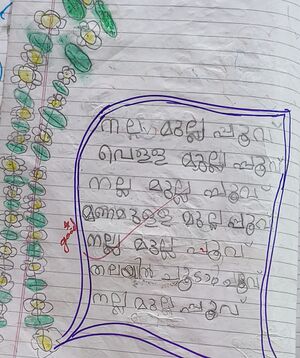 നല്ല മുല്ല പൂവ്
വെള്ള മുല്ല പൂവ്
നല്ല മുല്ല പൂവ്
മണമുള്ള മുല്ല പൂവ്
നല്ല മുല്ല പൂവ്
തലയിൽ ചൂടാം പൂവ്
നല്ല മുല്ല പൂവ്